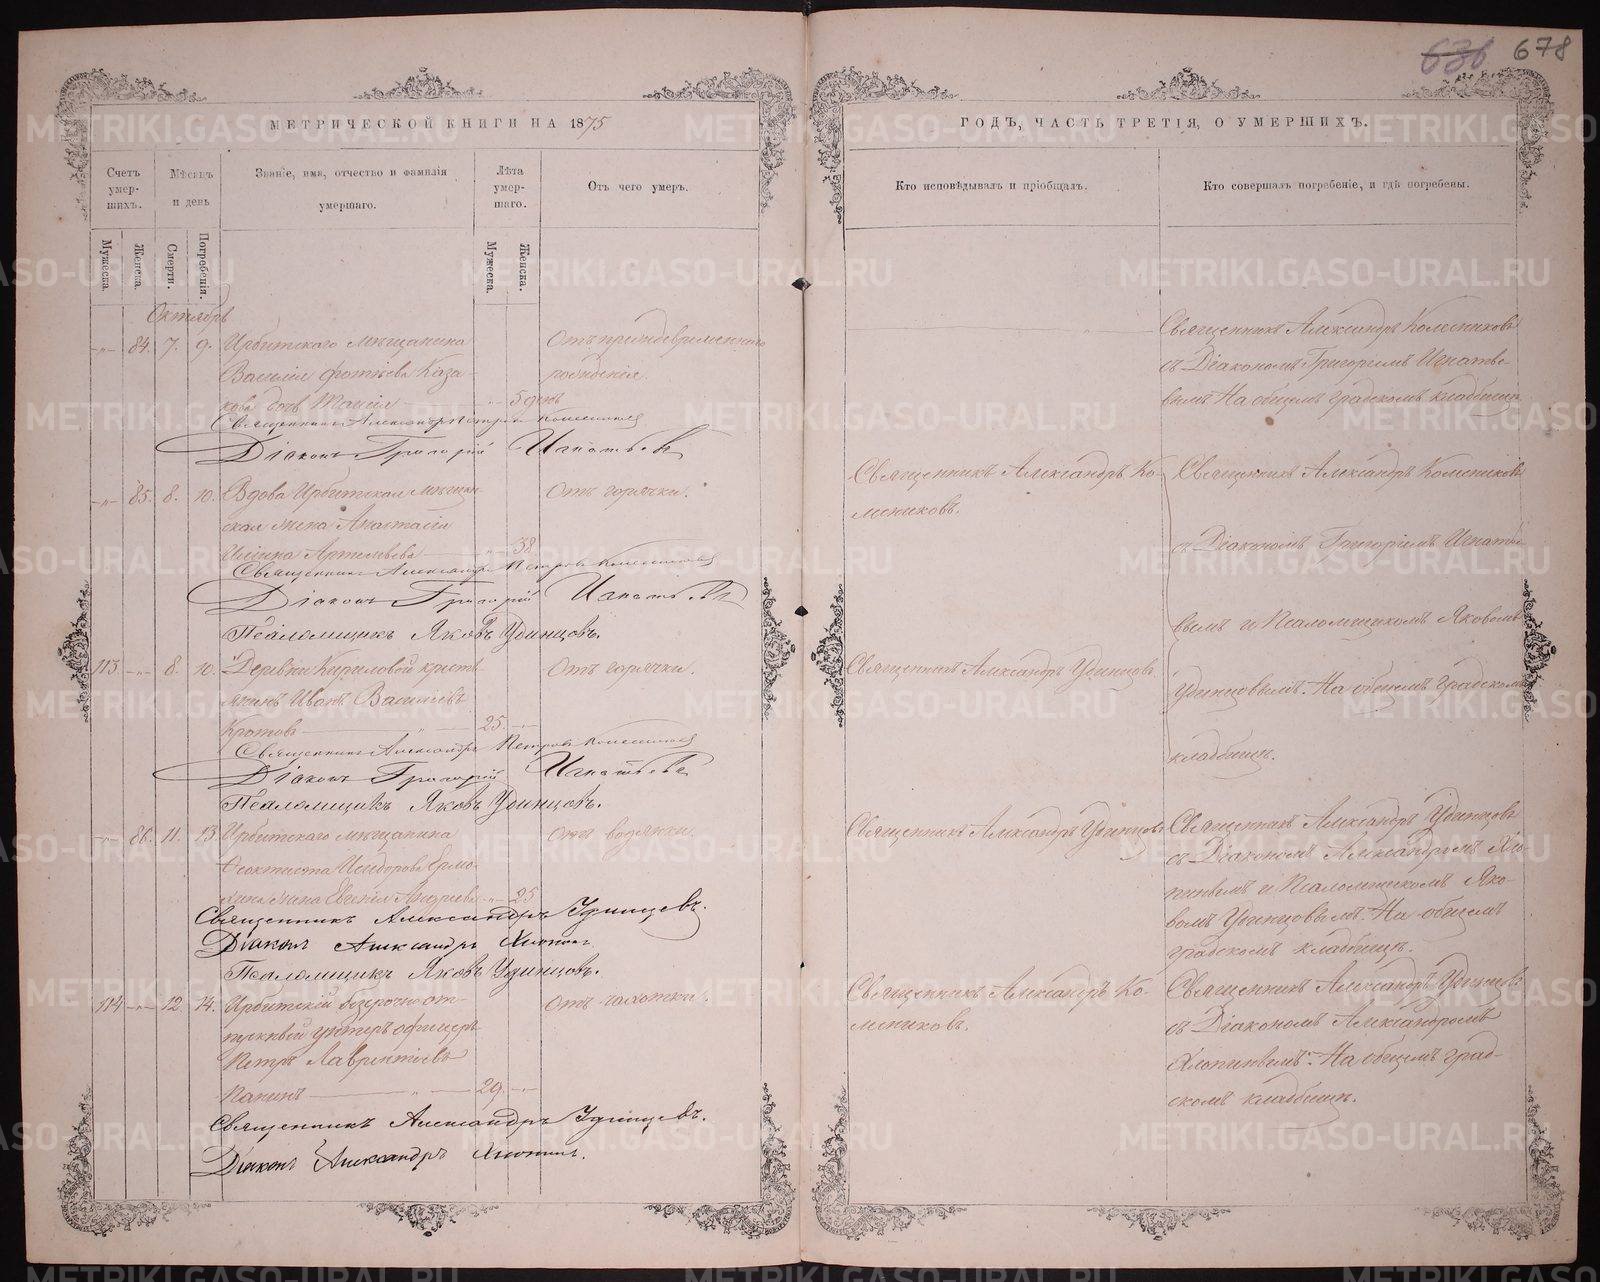 636 678
МЕТРИЧЕСКОЙ КНИГИ НА 1875
ГОДЪ, ЧАСТЬ ТРЕТІЯ, О УМЕРШИХЪ.
Счетъ умер-шихъ.
Мѣсяцъ и день
Званіе, имя, отчество и фамилія умершаго.
Лѣта умер-шаго.
Отъ чего умеръ.
Кто исповѣдывалъ и пріобщалъ.
Кто совершалъ погребеніе, и гдѣ погребены.
Мужеска.
Женска.
Смерти.
Погребенія.
Мужеска.
Женска.
Октябрь
-„- 84. 7. 9. Ирбитскаго мѣщанина
Василія Фотіева Каза-
кова дочь Таисія -„- 5 днев
Отъ преждевременнаго
рожденія.
Священникъ Александръ Колесниковъ
съ Діакономъ Григоріемъ Игнатье-
вымъ На общемъ градскомъ кладбищѣ
Священникъ Александръ Петровъ Колесниковъ
Діаконъ Григорій Игнатьевъ
-„- 85. 8. 10. Вдова Ирбитская мѣщан-
ская жена Анастасія
Ильина Артемьева -„- 38
Отъ горячки.
Священникъ Александръ Ко-
лесниковъ.
Священникъ Александръ Колесниковъ
съ Діакономъ Григоріемъ Игнатье-
вымъ и Псаломщикомъ Яковомъ
Удинцовымъ. На общемъ градскомъ
кладбищѣ.
Священникъ Александръ Петровъ Колесниковъ
Діаконъ Григорій Игнатьевъ
Псаломщикъ Яковъ Удинцовъ.
113. -„- 8. 10. Деревни Кириловой кресть-
янинъ Иванъ Васильевъ
Кротовъ 25. -„-
Отъ горячки.
Священникъ Александръ Удинцовъ.
Священникъ Александръ Петровъ Колесниковъ
Діаконъ Григорій Игнатьевъ
Псаломщикъ Яковъ Удинцовъ.
-„- 86. 11. 13. Ирбитскаго мѣщанина
Феоктиста Исидорова Ермо-
хина жена Евгенія Андреева -„- 25
Отъ водянки.
Священникъ Александръ Удинцовъ
Священникъ Александръ Удинцовъ
съ Діакономъ Александромъ Хло-
пинымъ и Псаломщикомъ Яко-
вомъ Удинцовымъ. На общемъ
градскомъ кладбищѣ.
Священникъ Александръ Удинцевъ.
Діаконъ Александръ Хлопинъ.
Псаломщикъ Яковъ Удинцовъ.
114 -„- 12. 14. Ирбитскій безсрочно-от-
пускной унтеръ офицеръ
Петръ Лаврентіевъ
Папинъ 29. -„-
Отъ чахотки.
Священникъ Александръ Ко-
лесниковъ.
Священникъ Александръ Удинцовъ
съ Діакономъ Александромъ
Хлопинымъ. На общемъ град-
скомъ кладбищѣ.
Священникъ Александръ Удинцевъ.
Діаконъ Александръ Хлопинъ.
METRIKI.GASO-URAL.RU